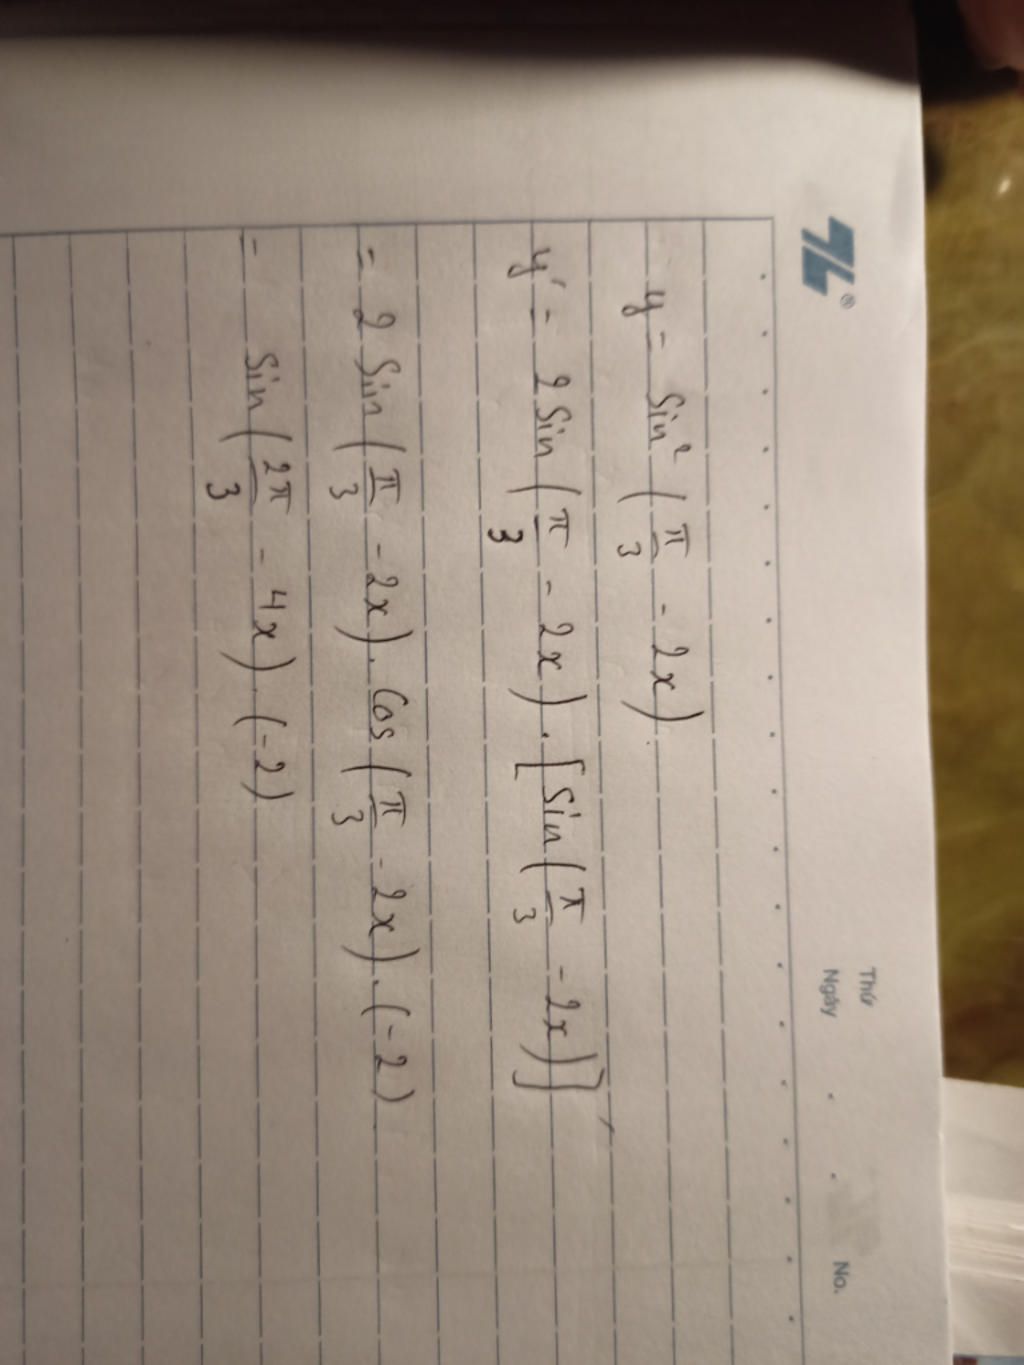 Thứ
Ngày . . No.
y = Sin² (π/3 - 2x)
y' = 2 Sin (π/3 - 2x) . [Sin (π/3 - 2x)]'
= 2 Sin (π/3 - 2x) . Cos (π/3 - 2x) . (-2)
= Sin (2π/3 - 4x) . (-2)